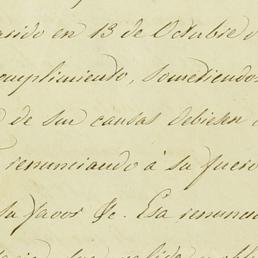 en 13 de Octubre
cumplimiento, sometiendo
de sus causas debiesen
renunciando á su fuero
su favor &c. Esa renun